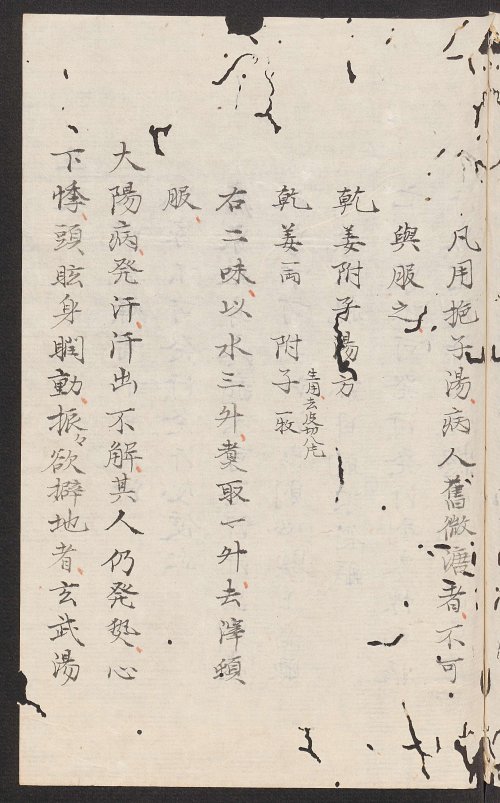 凡用梔子湯病人舊微溏者不可
與服之
乾姜附子湯方
乾姜一兩 附子一枚 生用去皮切八片
右二味以水三升煑取一升去滓頓
服
大陽病発汗汗出不解其人仍発熱心
下悸頭眩身瞤動振々欲擗地者玄武湯